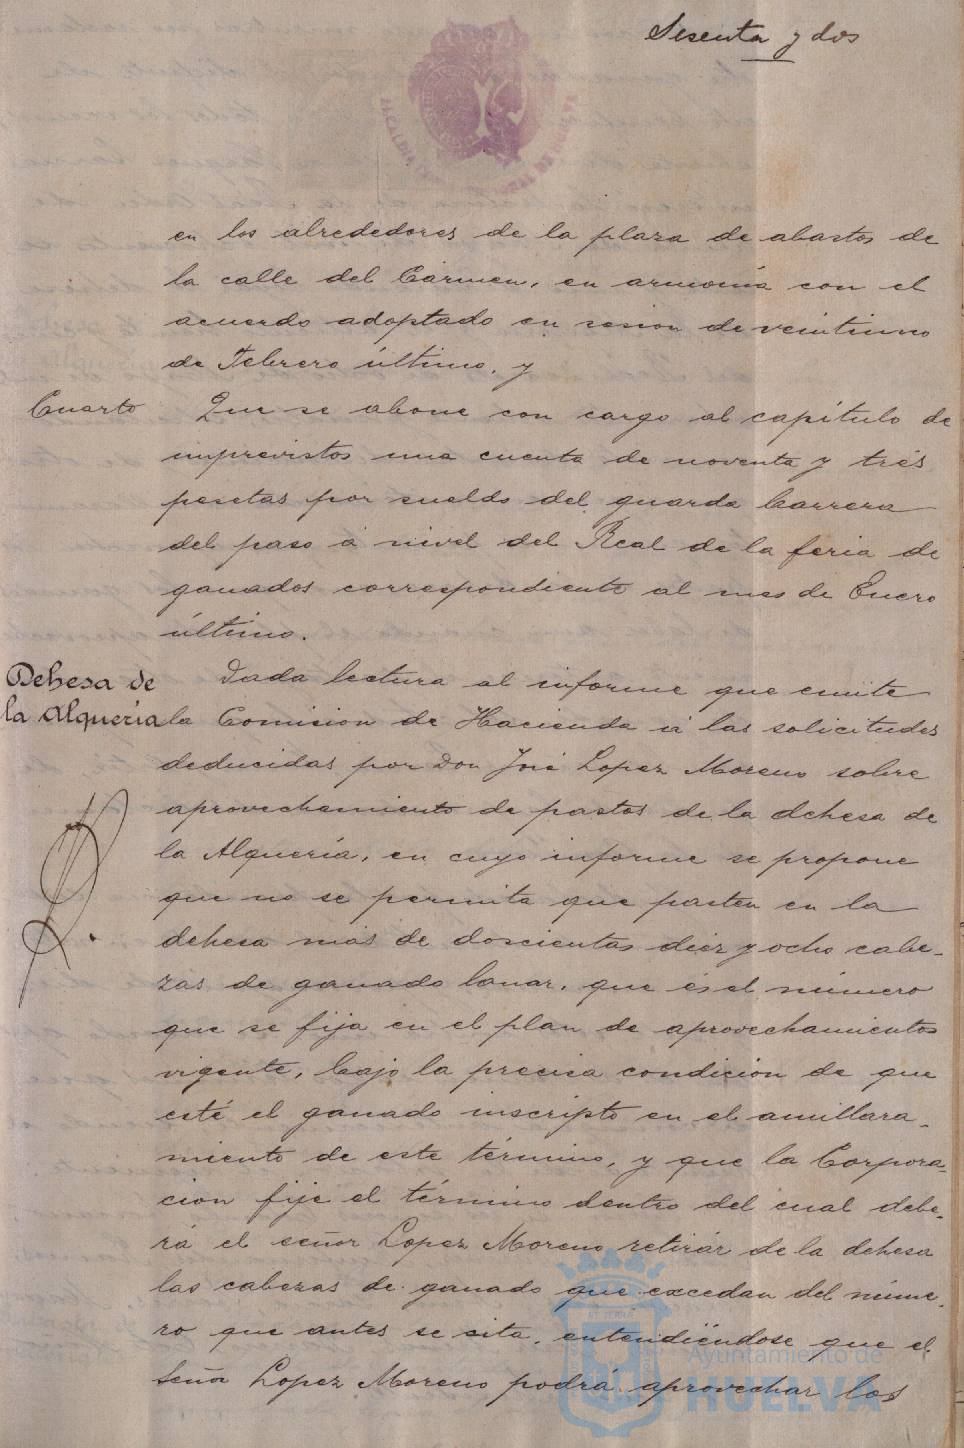 Sesenta y dos
en los alrededores de la plaza de abastos de
la calle del Cármen, en armonía con el
acuerdo adoptado en sesion de veintiuno
de Febrero último, y
Cuarto Que se abone con cargo al capítulo de
imprevistos una cuenta de noventa y tres
pesetas por sueldo del guarda barrera
del paso á nivel del Real de la feria de
ganados correspondiente al mes de Enero
último.
Dehesa de
la Alquería
Dada lectura al informe que emite
la Comision de Hacienda á las solicitudes
deducidas por Don José Lopez Moreno sobre
aprovechamiento de pastos de la dehesa de
la Alquería, en cuyo informe se propone
que no se permita que pasten en la
dehesa más de doscientas diez y ocho cabe-
zas de ganado lanar, que es el número
que se fija en el plan de aprovechamientos
vigente, bajo la precisa condicion de que
esté el ganado inscripto en el amillara-
miento de este término, y que la Corpora-
cion fije el término dentro del cual debe-
rá el señor Lopez Moreno retirar de la dehesa
las cabezas de ganado que excedan del núme-
ro que antes se sita, entendiéndose que el
señor Lopez Moreno podrá aprovechar los
Ayuntamiento de
HUELVA